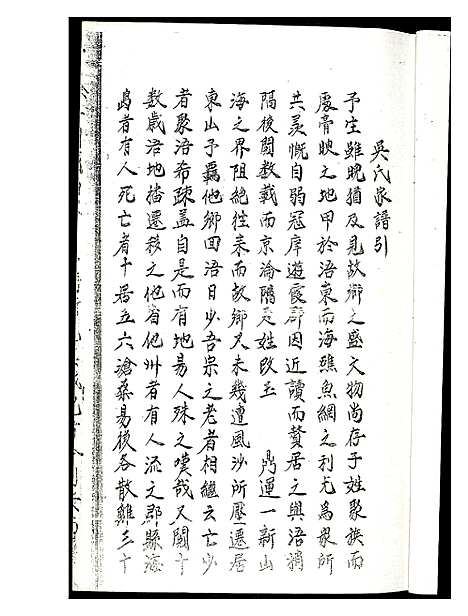 吳氏家譜引
予生雖晚猶及見故鄉之盛文物尚存子姓聚族而
處膏腴之地甲於浯東而海礁魚網之利尤為眾所
共羨慨自弱冠庠遊霞郡因近讀而贅居之與浯稍
隔後閱數載而京淪陷是姓改玉 鼎運一新山
海之界阻絕往來而故鄉又未幾遭風沙所壓遷居
東山予羈他鄉回浯日少吾宗之老者相繼云亡少
者聚浯希疎蓋自是而有地易人殊之嘆哉又閱十
數歲浯地播遷移之他省他州者有人流之郡縣海
島者有人死亡者十居五六滄桑易後各散難三十